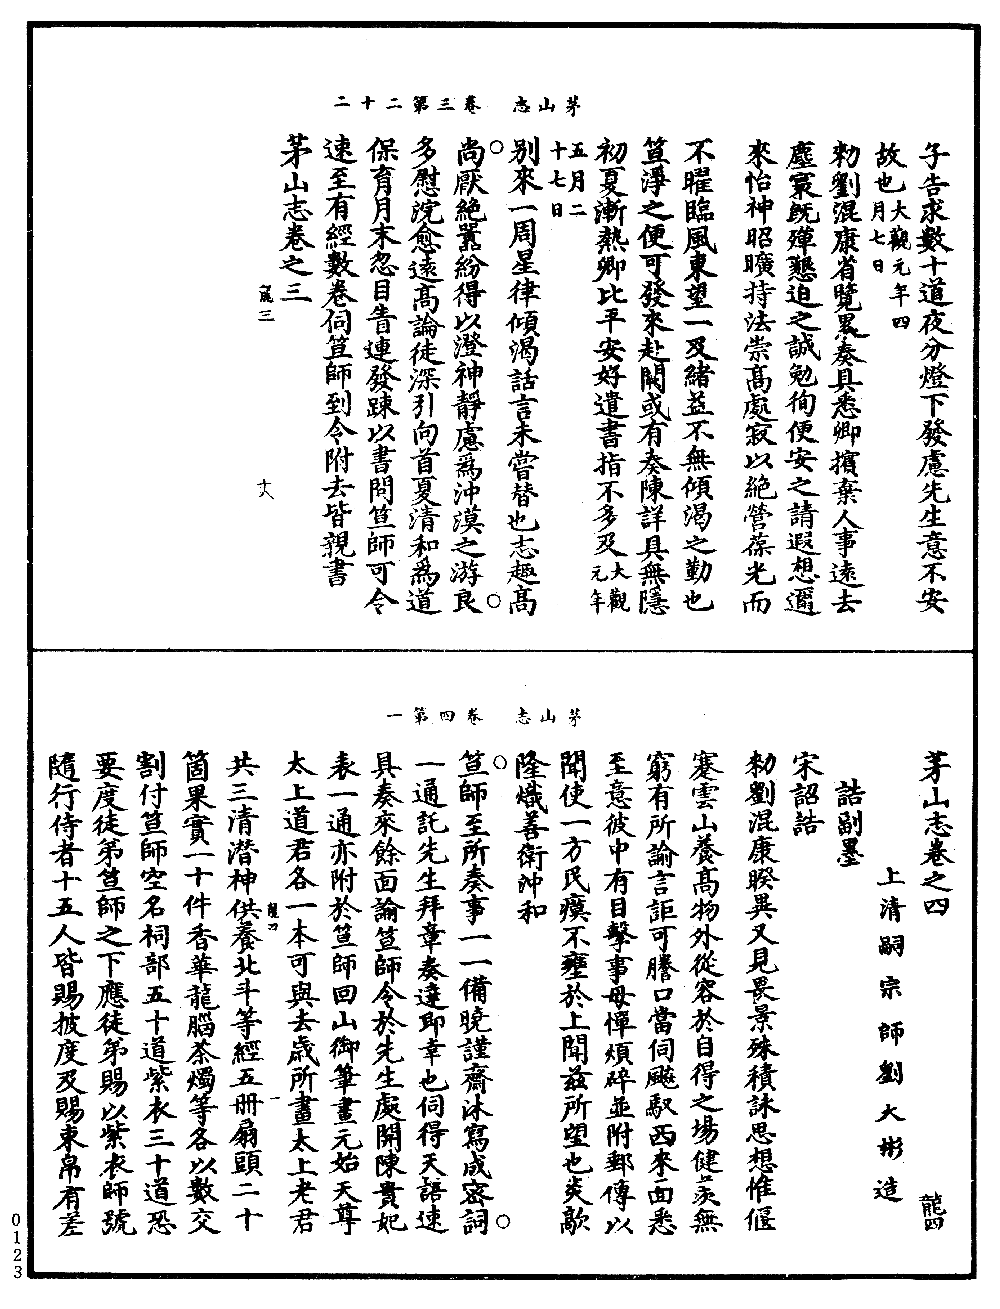 茅山志　卷三第二十二
子告求數十道夜分燈下發處先生意不安
故也大觀元年四月七日
勑劉混康省覽累奏具悉卿擯棄人事遠去
塵寰旣殫懇迫之誠勉徇便安之請遐想遁
來怡神昭曠持法崇高處寂以絕營葆光而
不曜臨風東望一及緒益不無傾渴之勤也
笪淨之便可發來赴闕或有奏陳詳具無隱
初夏漸熱卿比平安好遣書指不多及大觀元年
五月二十七日
別來一周星律傾渴話言未嘗替也志趣高
尚厭絕囂紛得以澄神靜慮爲沖漠之游良
多慰浣愈遠高論徒深引向首夏清和爲道
保育月末忽目眚連發踈以書問笪師可令
速至有經數卷伺笪師到令附去皆親書
茅山志卷之三
龍三　十八
茅山志　卷四第一
茅山志卷之四　龍四
上清嗣宗師劉大彬造
誥副墨
宋詔誥
勑劉混康睽異又見畏景殊積詠思想惟偃
蹇雲山養高物外從容於自得之場健羨無
窮有所諭言詎可謄口當伺飈馭西來面悉
至意彼中有目擊事毋憚煩碎並附郵傳以
聞使一方民瘼不壅於上聞兹所望也炎歊
隆熾善衛沖和
笪師至所奏事一一備曉謹齋沐寫成密詞
一通託先生拜章奏達即幸也伺得天語速
具奏來餘面諭笪師令於先生處開陳貴妃
表一通亦附於笪師回山御筆畫元始天尊
太上道君各一本可與去歲所畫太上老君
共三清潛神供養北斗等經五冊扇頭二十
箇果實一十件香華龍腦茶燭等各以數交
割付笪師空名祠部五十道紫衣三十道恐
要度徒弟笪師之下應徒弟賜以紫衣師號
隨行侍者十五人皆賜披度及賜束帛有差
龍四　一
0123